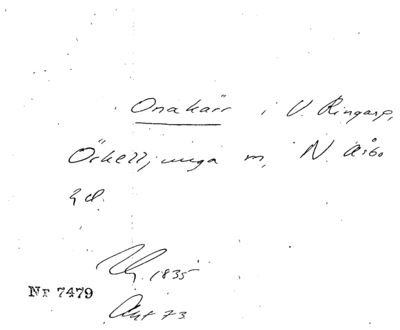 Onakärr i V. Ringarp,
Örkelljunga m, N. Åsbo
hd.
1835
Nr 7479
Akt 73